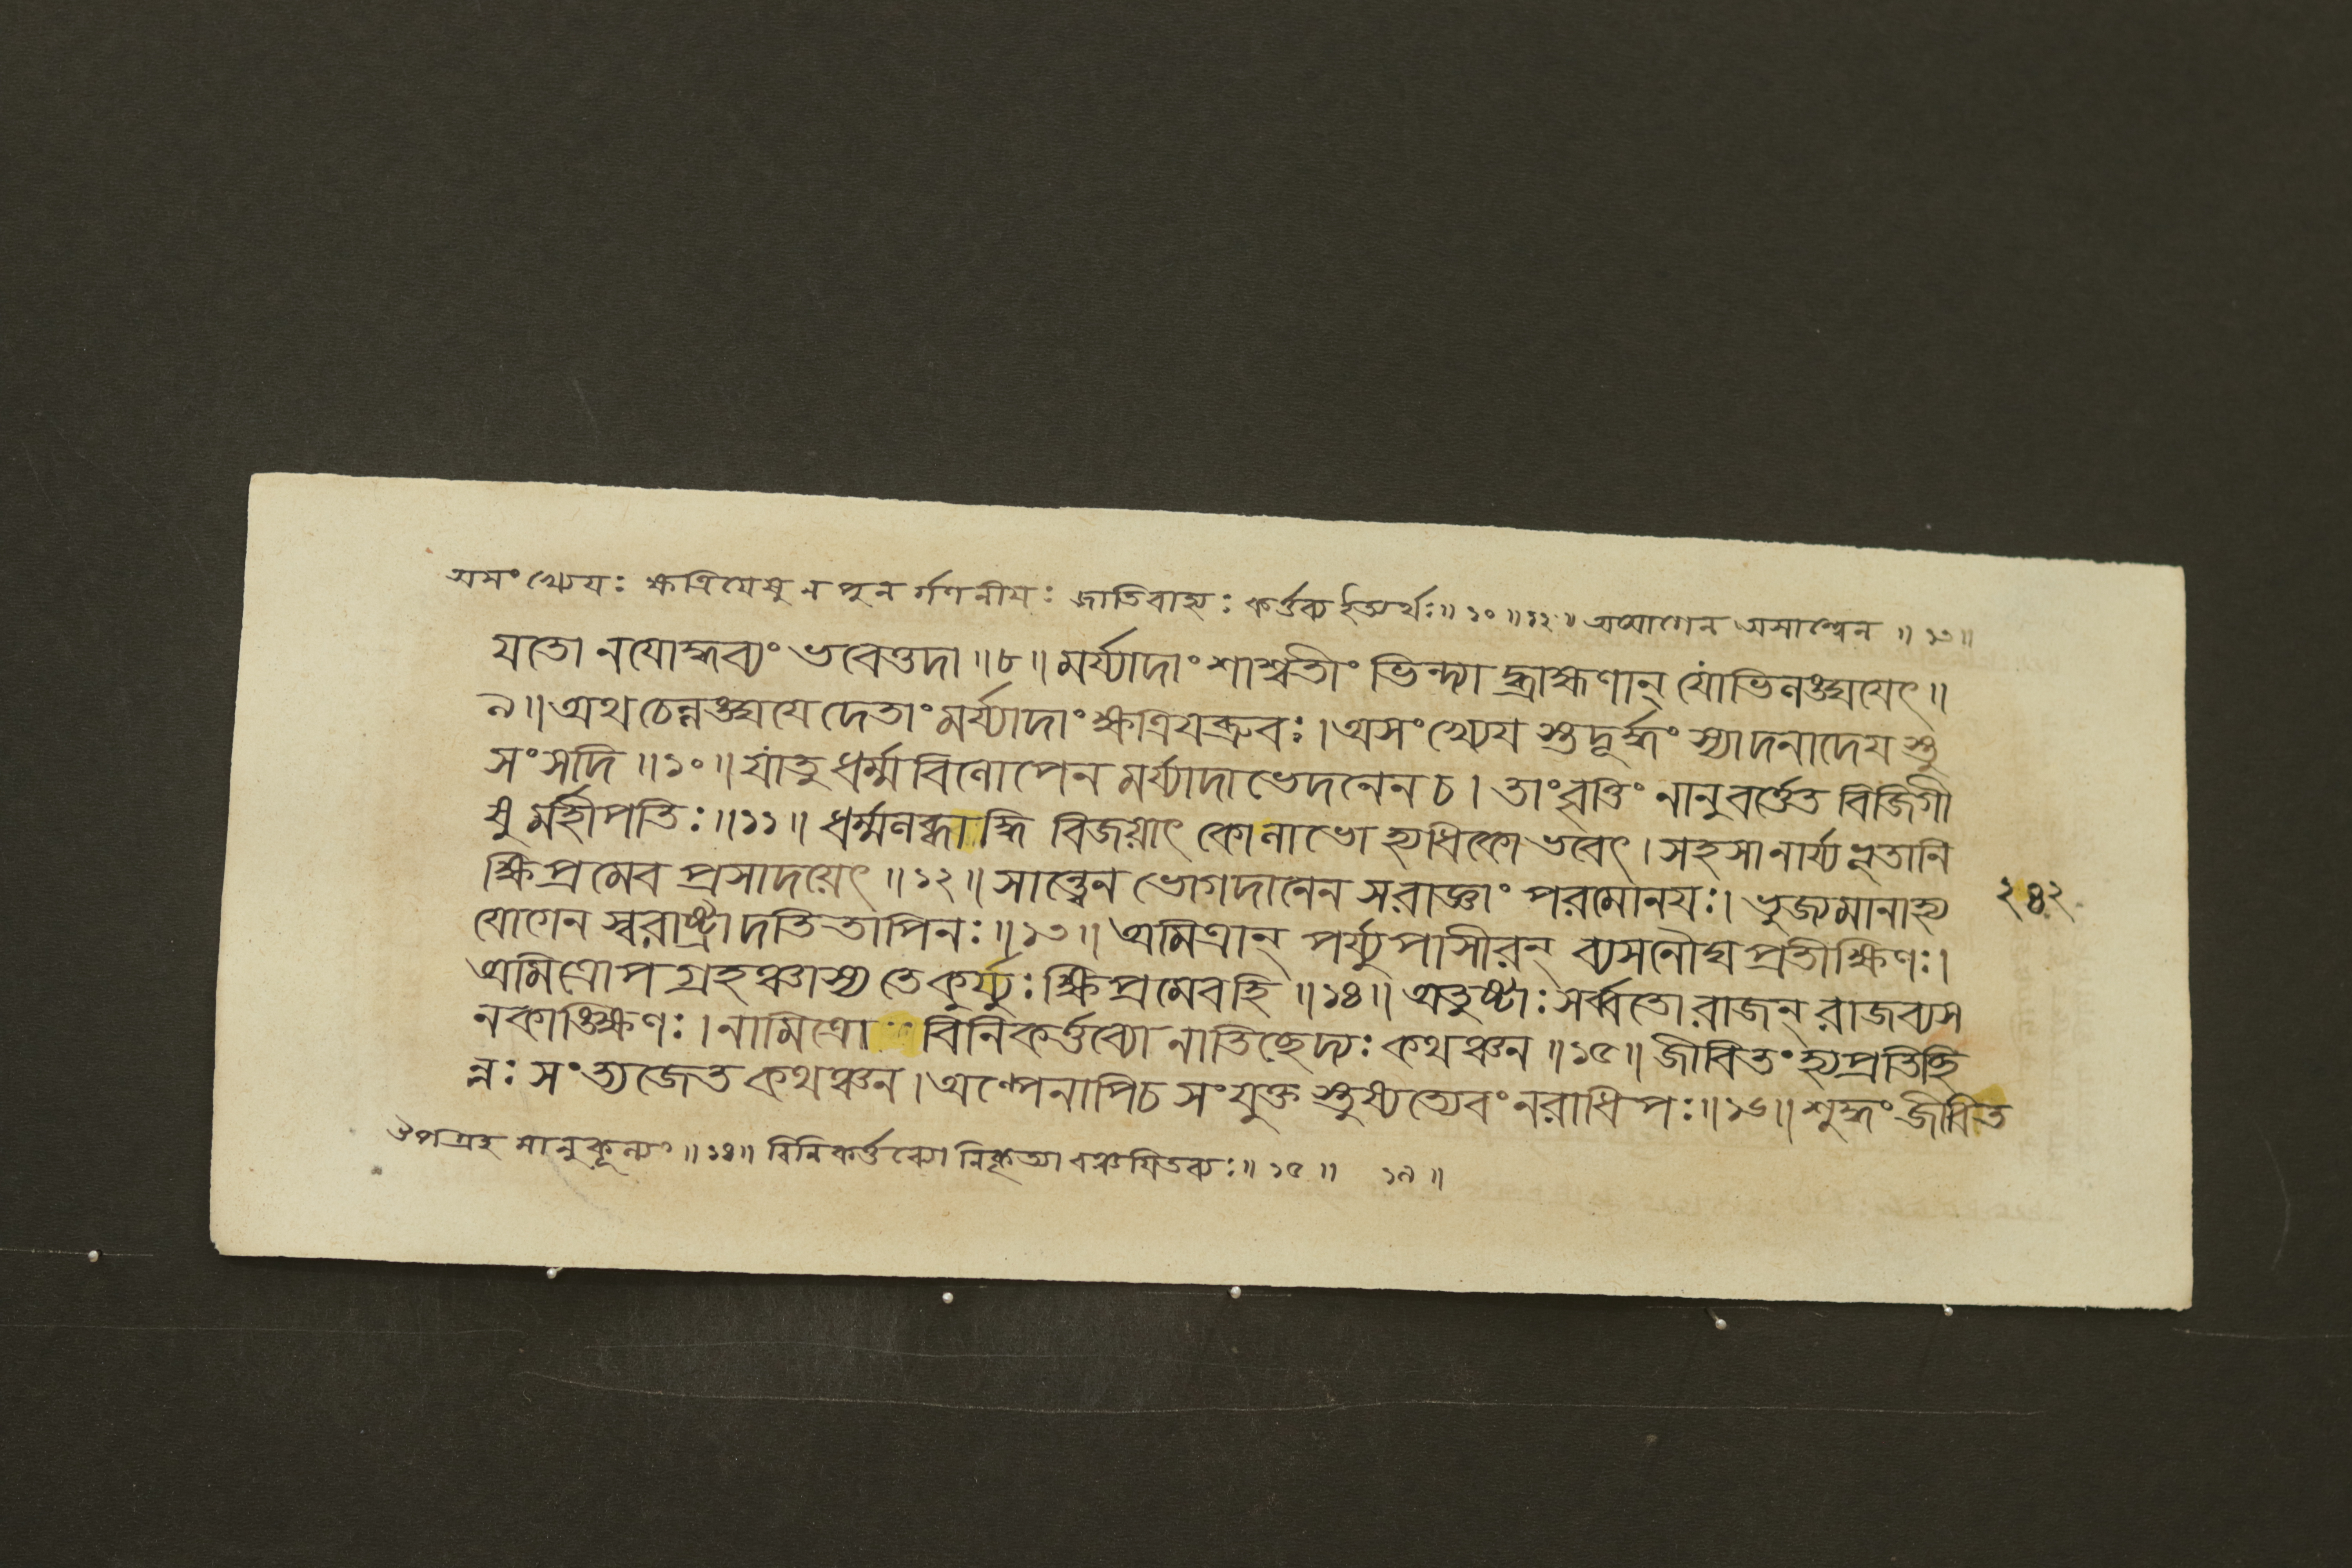 অসংখ্যেয়ঃ ক্ষত্রিয়েষু ন পুনর্গণনীয়ঃ জাতিবাহ্যঃ কর্ত্তব্য ইত্যর্থঃ॥ ১০ ॥ ১২ ॥ অযোগেন অসান্ত্বেন ॥ ১৩॥
যতো নযোদ্ধব্যং ভবেত্তদা ॥৮॥ মর্য্যাদাং শাশ্বতীং ভিন্দ্যা দ্ব্রাহ্মণান্ যোভিলঙ্ঘযেৎ॥
৯॥ অথ চেল্লঙ্ঘযে দেতাং মর্য্যাদাং ক্ষত্রিযব্রুবঃ। অসংখ্যেয স্তদূর্দ্ধং স্যাদনাদেয শ্চ
সংসদি ॥১০॥ যাংতু ধর্ম্ম বিলোপেন মর্য্যাদা ভেদনেন চ। তাং বৃত্তিং নানুবর্ত্তেত বিজিগী
ষু র্মহীপতিঃ॥১১॥ ধর্ম্মলব্ধা দ্ধি বিজয়াৎ কোলাভো হ্যধিকো ভবেৎ। সহসানার্য্য ভূতানি
ক্ষিপ্রমেব প্রসাদয়েৎ ॥১২॥ সান্ত্বেন ভোগদানেন সরাজ্ঞাং পরমোনযঃ। ভুজ্যমানাহ্য
যোগেন স্বরাষ্ট্রাদতি তাপিনঃ॥১৩॥ অমিত্রান্ পর্য্যুপাসীরন্ ব্যসনৌঘ প্রতীক্ষিণঃ।
অমিত্রোপগ্রহঞ্চাস্য তেকুর্য্যুঃ ক্ষিপ্রমেবহি ॥১৪॥ অতুষ্টাঃ সর্ব্বতো রাজন্ রাজব্যস
নকাঙ্ক্ষিণঃ। নামিত্রো বিনিকর্ত্তব্যো নাতিছেদ্যঃ কথঞ্চন ॥১৫॥ জীবিতং হ্যপ্রতিচ্ছি
ন্নঃ সংত্যজেত কথঞ্চন। অল্পেনাপিচ সংযুক্ত স্তুষ্যত্যেবং নরাধিপঃ॥১৬॥ শুদ্ধং জীবিত
২৪২
উপগ্রহ মানুকূল্যং॥ ১৪॥ বিনিকর্ত্তব্যো নিকৃত্যা বঞ্চযিতব্যঃ॥ ১৫ ॥ ১৯ ॥